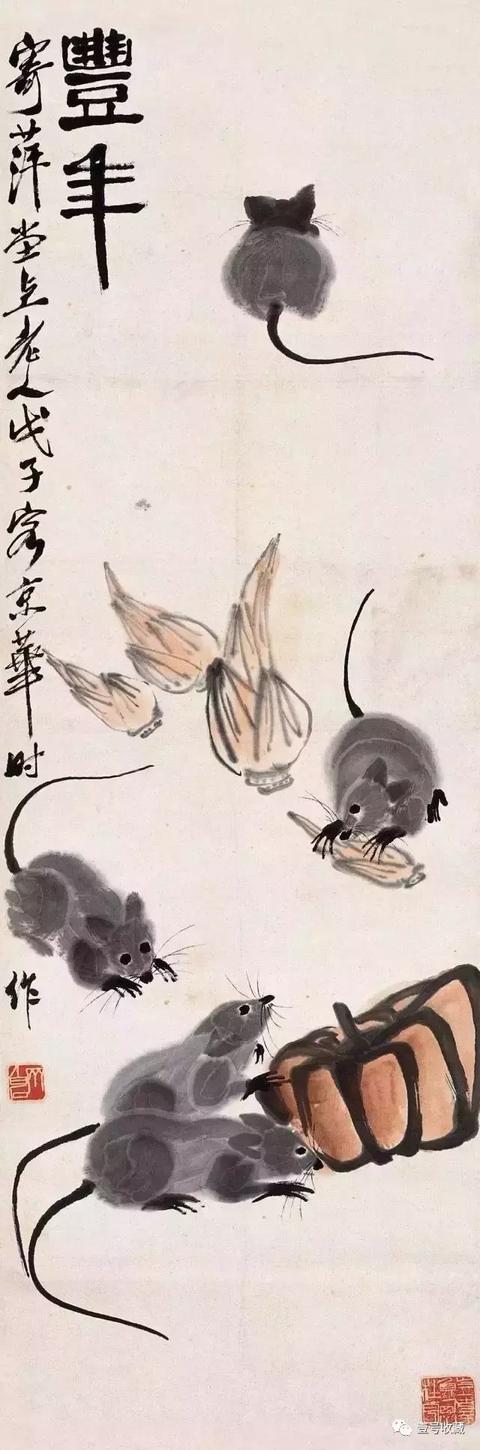 豐年
寄萍堂上老人戊子客京華时作
壹号收藏